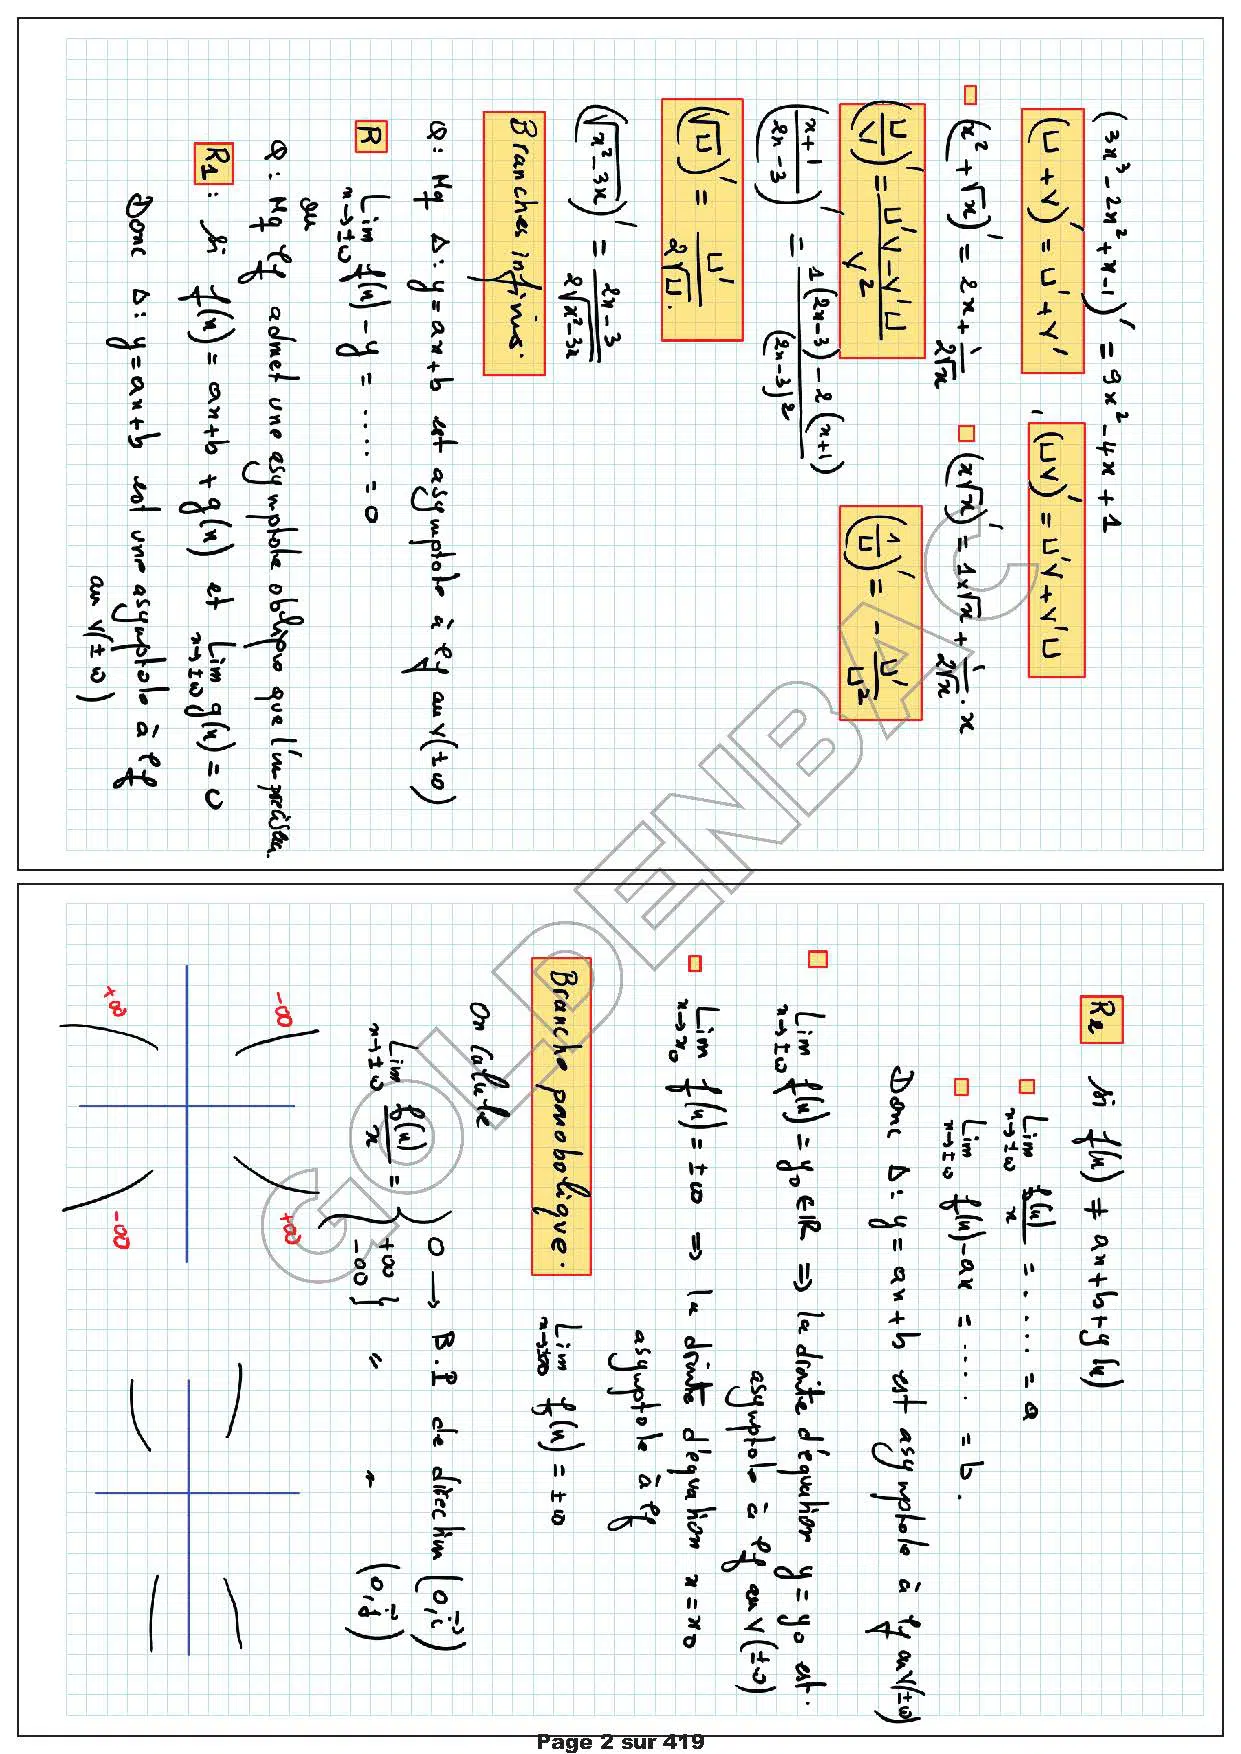 (3x³ - 2x² + x - 1)' = 9x² - 4x + 1
(U + V)' = U' + V' , (UV)' = U'V + V'U
(x² + √x)' = 2x + 1/2√x (x√x)' = 1×√x + 1/2√x · x
(U/V)' = U'V - V'U / V² (1/U)' = - U'/U²
(x+1 / 2x-3)' = 1(2x-3) - 2(x+1) / (2x-3)²
(√U)' = U' / 2√U .
(√x²-3x)' = 2x-3 / 2√x²-3x
Branches infinies.
Q: Mq Δ: y = ax+b est asymptote à ℓf au V(±∞)
R Lim f(x) - y = ..... = 0
x→±∞
ou
Q: Mq ℓf admet une asymptote oblique que l'on précisera.
R1: Si f(x) = ax+b + g(x) et Lim g(x) = 0
x→±∞
Donc Δ: y = ax+b est une asymptote à ℓf
au V(±∞)
R2 Si f(x) ≠ ax+b+g(x)
Lim f(x)/x = ..... = a
x→±∞
Lim f(x) - ax = .... = b.
x→±∞
Donc Δ: y = ax+b est asymptote à ℓf au V(±∞)
Lim f(x) = y₀ ∈ ℝ ⇒ la droite d'équation y = y₀ est.
x→±∞
asymptote à ℓf au V(±∞)
Lim f(x) = ±∞ ⇒ la droite d'équation x = x₀
x→x₀
asymptote à ℓf
Branche parabolique. Lim f(x) = ±∞
x→±∞
On Calcule
Lim f(x)/x = { 0 → B.P de direction (0, i⃗)
x→±∞
+∞ -∞ } " " (0, j⃗)
-∞ +∞
+∞ -∞
GOLDENBAC
Page 2 sur 419